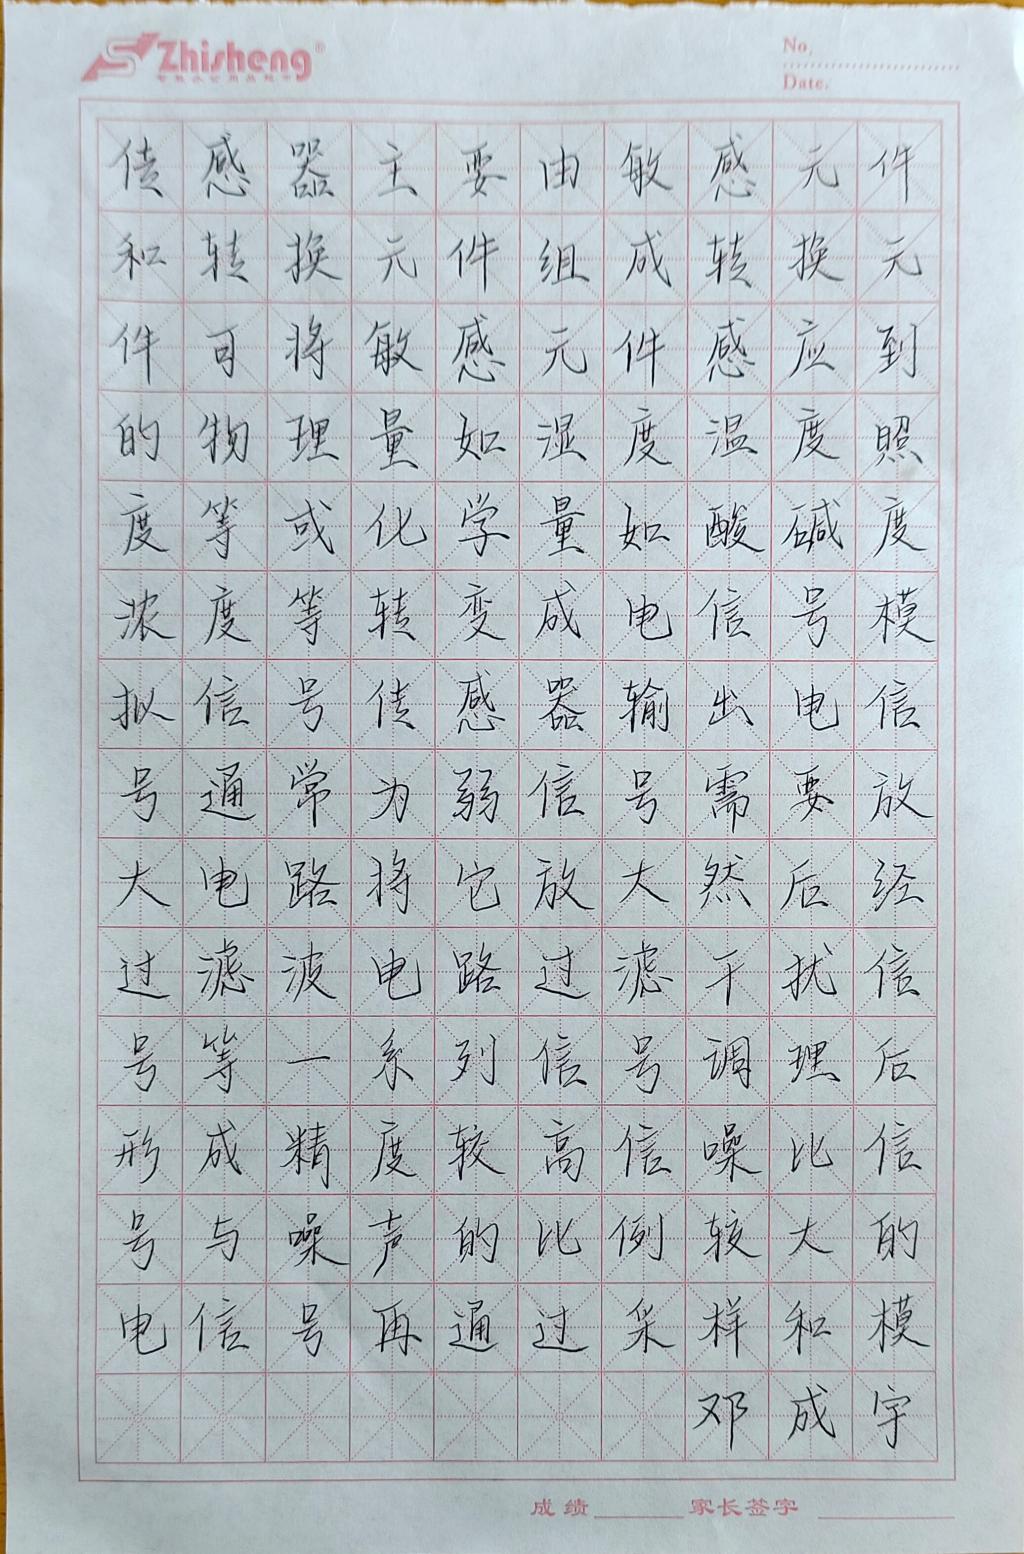 Zhisheng®
No.
Date.
传感器主要由敏感元件
和转换元件组成转换元
件可将敏感元件感应到
的物理量如湿度温度照
度等或化学量如酸碱度
浓度等转变成电信号模
拟信号传感器输出电信
号通常为弱信号需要放
大电路将它放大然后经
过滤波电路过滤干扰信
号等一系列信号调理后
形成精度较高信噪比信
号与噪声的比例较大的
电信号再通过采样和模
邓成宇
成绩
家长签字